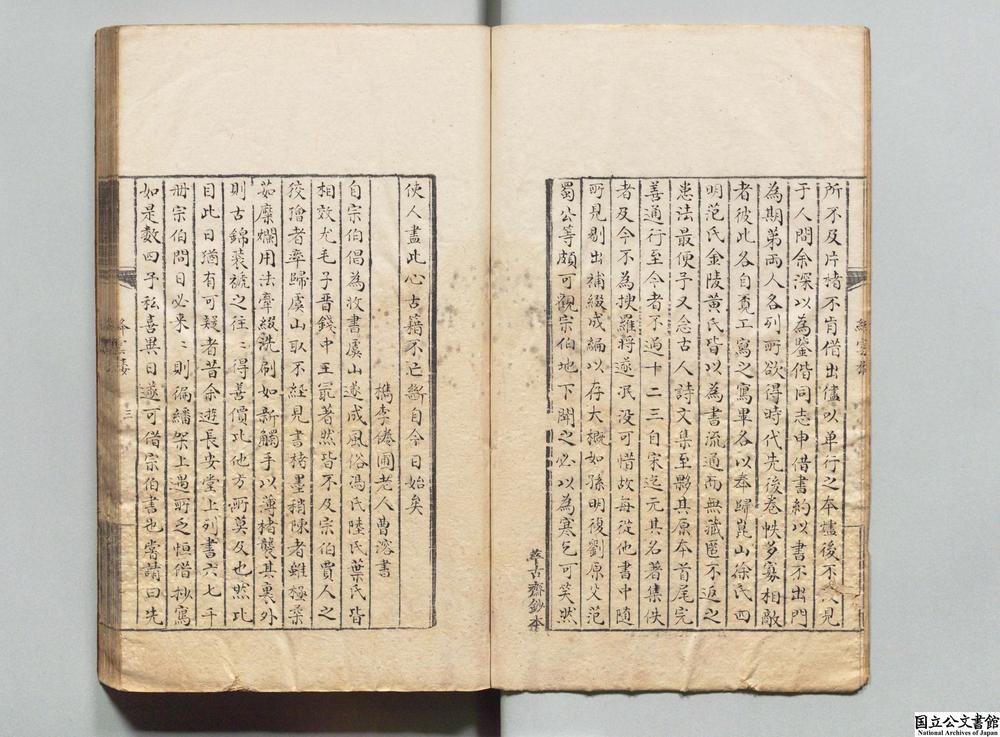 所不及片楮不肯借出儘以单行之本爐後不復見
于人間余深以為鑒偕同志申借書約以書不出門
為期第両人各列所欲得時代先後卷帙多寡相敵
者彼此各自覓工寫之寫畢各以奉歸崑山徐氏四
明范氏金陵黄氏皆以為書流通而無藏匿不返之
患法最便予又念古人詩文集至夥其原本首尾完
善通行至今者不過十二三自宋迄元其名著集佚
者及今不為搜羅将遂泯没可惜故每從他書中随
所見剔出補綴成編以存大概如孫明復劉原父范
蜀公等頗可觀宗伯地下聞之必以為寒乞可笑然
萃古齋鈔本
使人盡此心古籍不亡断自今日始矣
檇李倦圃老人曹溶書
自宗伯倡為收書虞山遂成風俗馮氏陸氏葉氏皆
相效尤毛子晉錢中王最著然皆不及宗伯賈人之
狡獪者率歸虞山取不經見書楮墨稍陳者雖極柔
茹糜爛用法牽綴洗刷如新觸手以薄楮襲其裏外
則古錦裝褫之往〻得善價此他方所莫及也然此
目此日猶有可疑者昔余遊長安堂上列書六七千
冊宗伯間日必来〻則徧繙架上遇所乏恒借抄寫
如是数四予私喜異日遂可借宗伯書也嘗請曰先
三